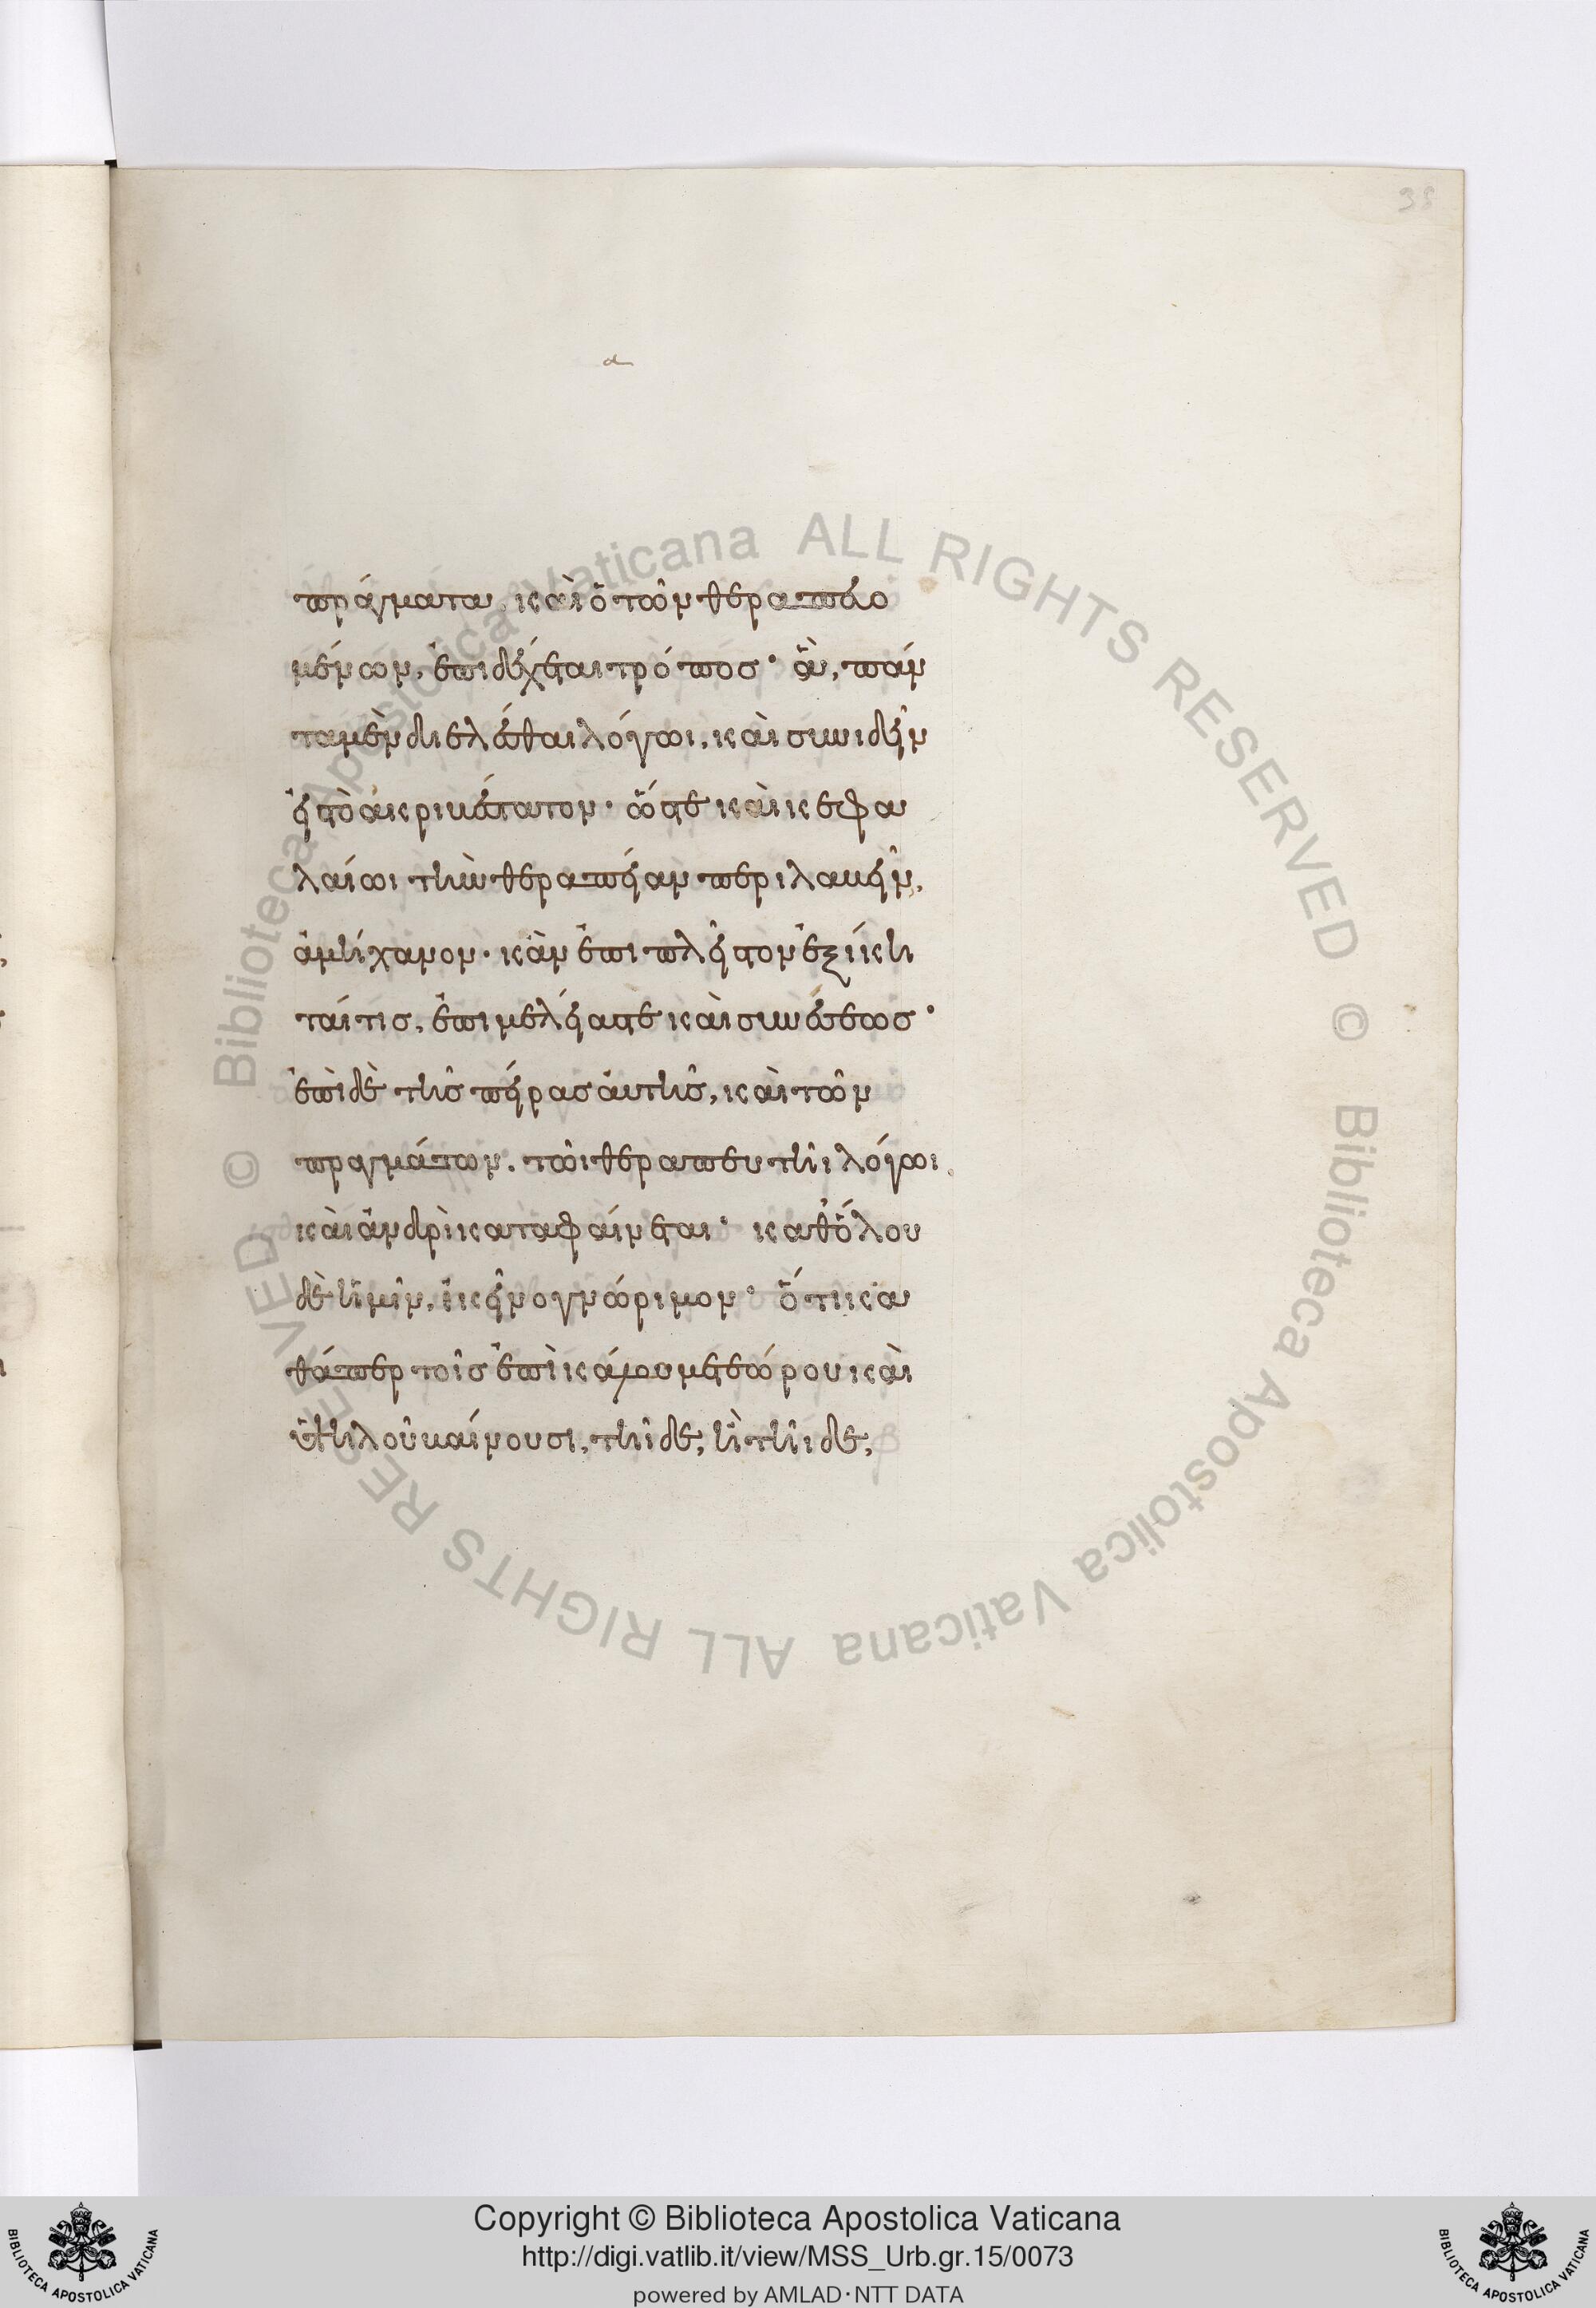 38
α
πράγματα, καὶ ὁ τῶν θεραπευο
μένων, ἐπιδέχεται τρόπος· ἃ, πάν
τα μὲν διελέσθαι λόγωι, καὶ συνιδεῖν
εἰς τὸ ἀκριβέστατον· ὥστε καὶ κεφα
λαίωι τὴν θεραπείαν περιλαβεῖν,
ἀμήχανον· κἂν ἐπι πλεῖστον ἐξίκη
ταί τις, ἐπιμελείας τε καὶ συνέσεως·
ἐπὶ δὲ τῆς πείρας αὐτῆς, καὶ τῶν
πραγμάτων. τῶι θεραπευτῆι λόγωι,
καὶ ἀνδρὶ καταφαίνεται· καθόλου
δὲ ἡμῖν, ἐκεῖνο γνώριμον· ὅτι κα
θάπερ τοῖς ἐπὶ κάλου μετεώρου καὶ
ὑψηλοῦ βαίνουσι, τῆιδε, ἢ τῆιδε,
Copyright © Biblioteca Apostolica Vaticana
http://digi.vatlib.it/view/MSS_Urb.gr.15/0073
powered by AMLAD·NTT DATA
BIBLIOTECA APOSTOLICA VATICANA
BIBLIOTECA APOSTOLICA VATICANA
© Biblioteca Apostolica Vaticana ALL RIGHTS RESERVED © Biblioteca Apostolica Vaticana ALL RIGHTS RESERVED